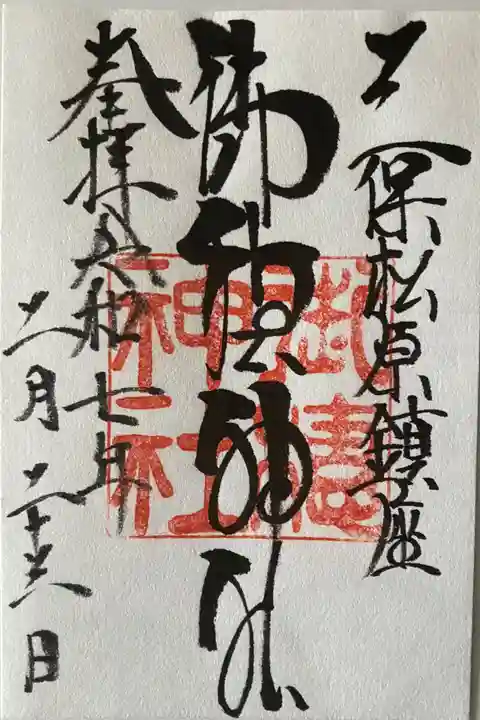 三保松原鎮座
御穂神社
奉拝 令和七年
二月二十六日
御穗
神社